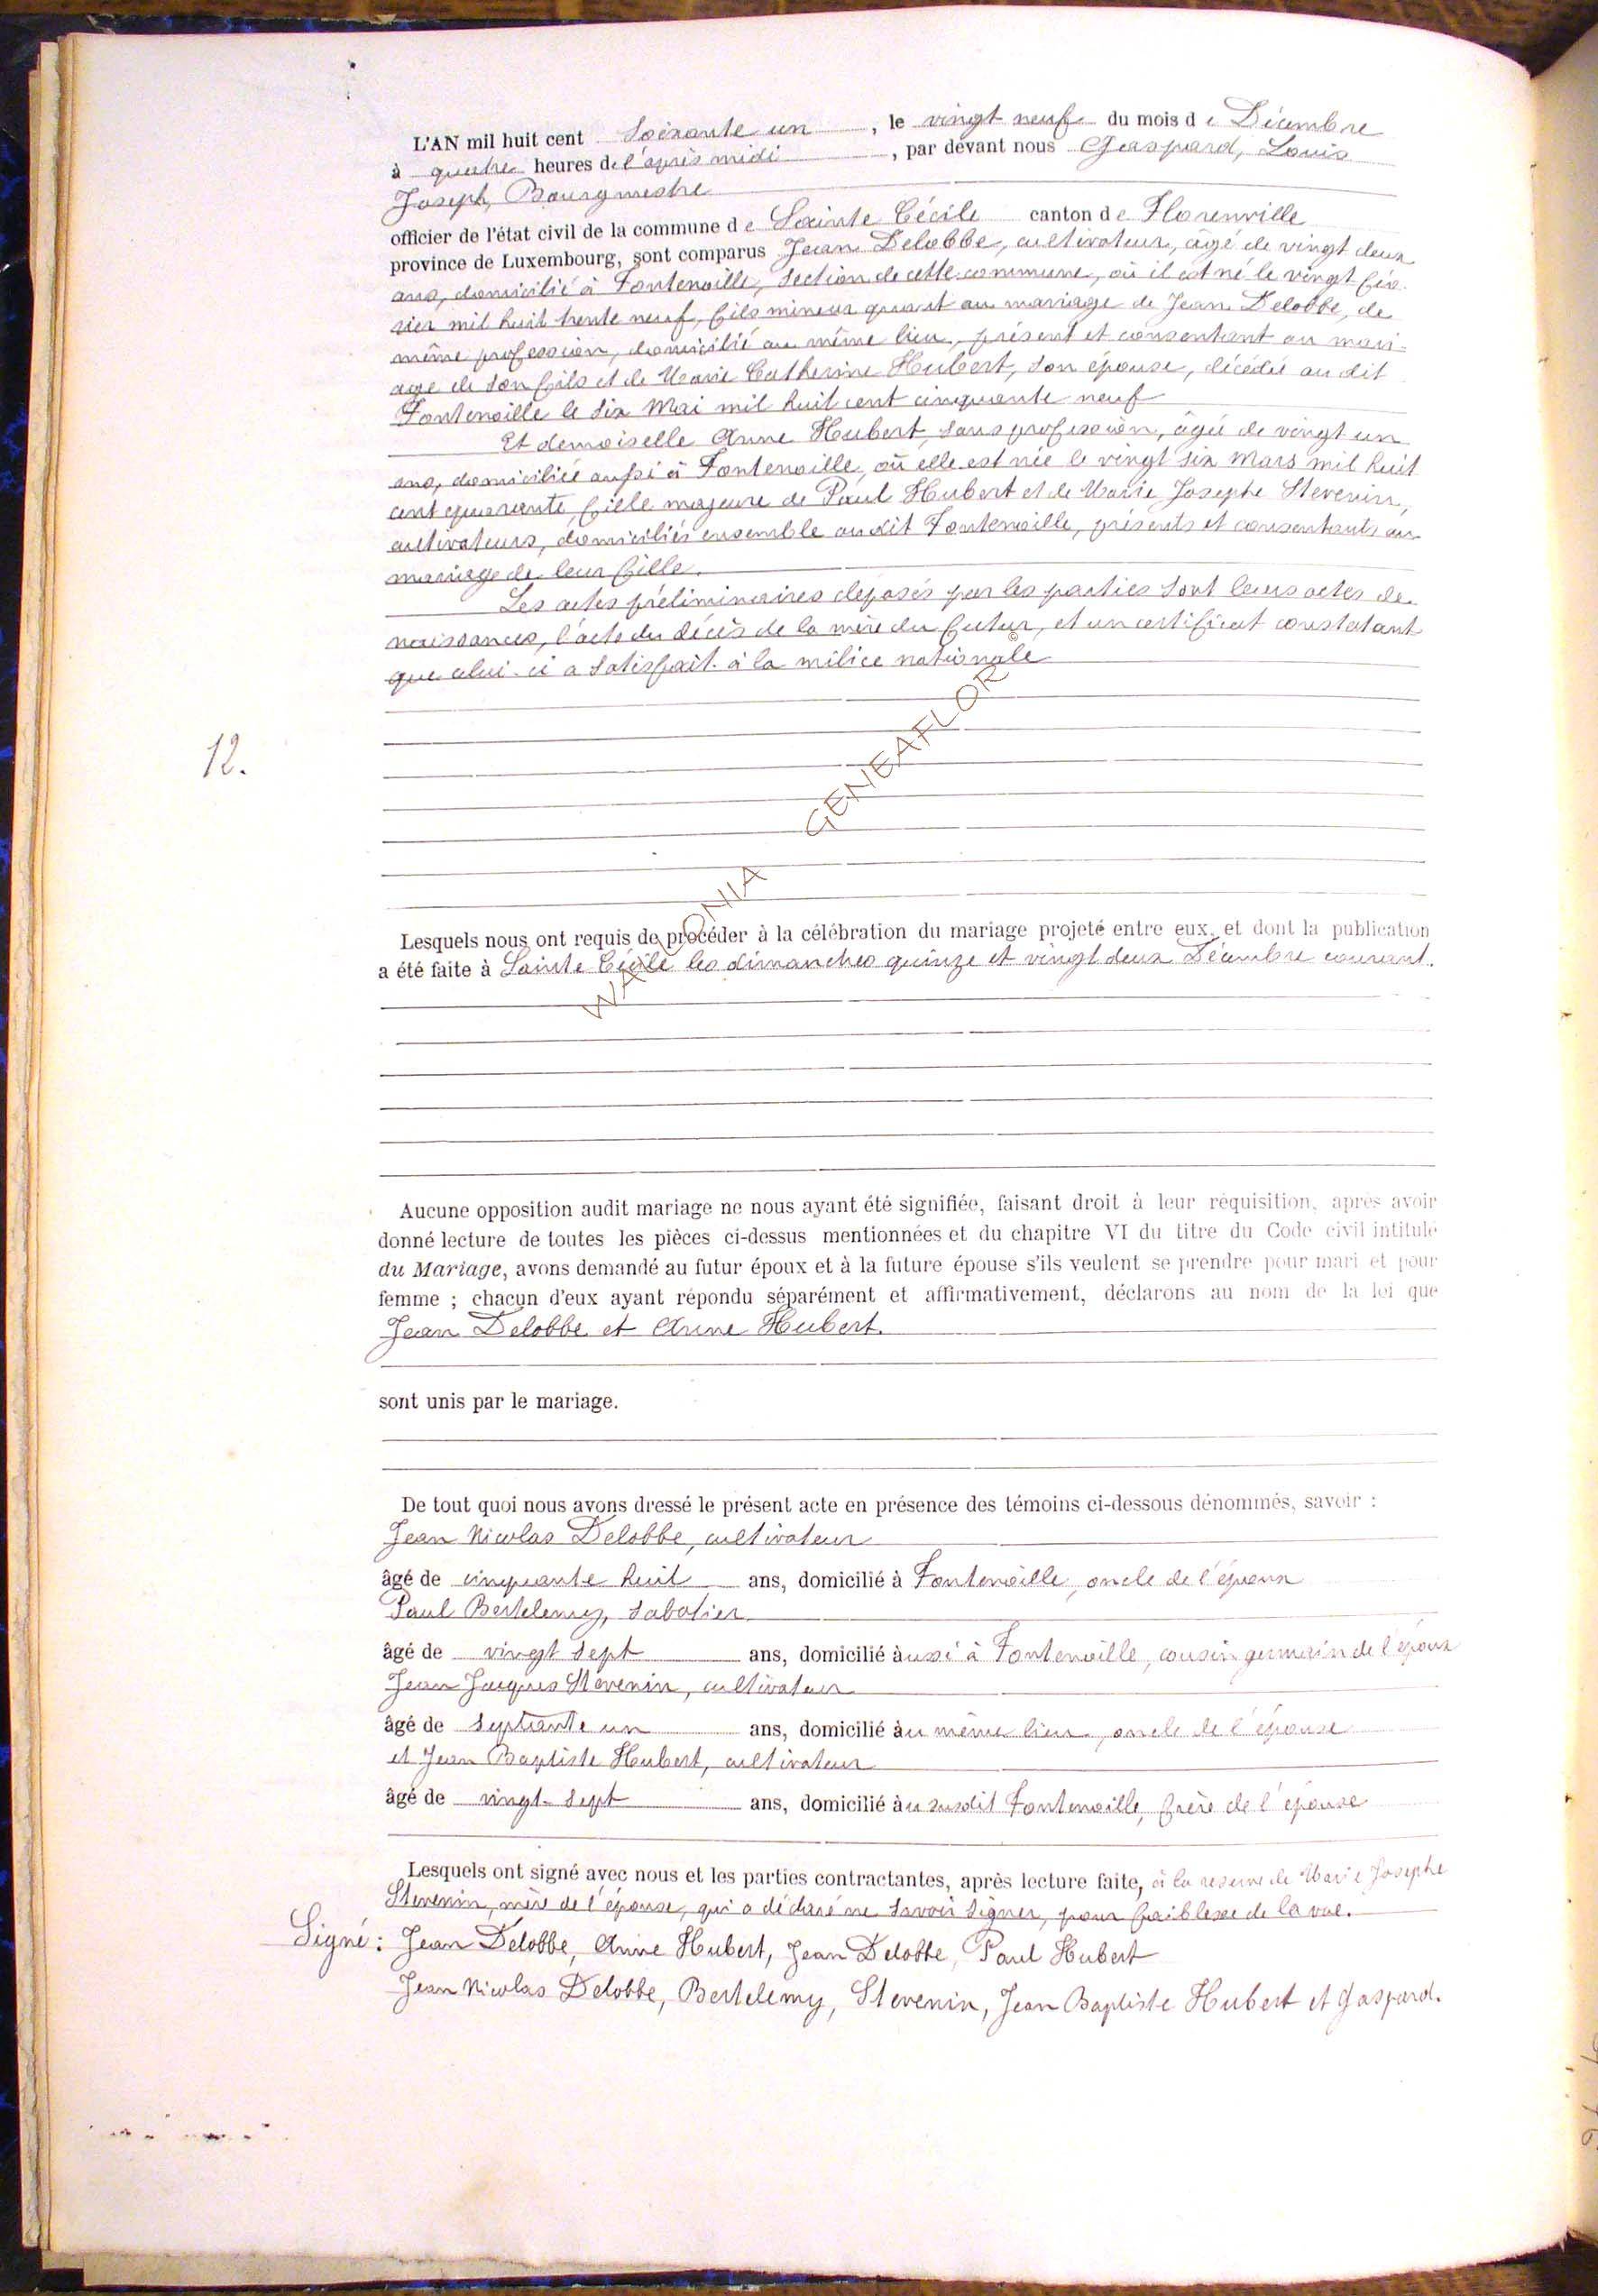 L'AN mil huit cent Soixante un , le vingt neuf du mois de Décembre
à quatre heures de l'après midi , par devant nous Gaspard, Louis
Joseph, Bourgmestre
officier de l'état civil de la commune de Sainte Cécile canton de Florenville
province de Luxembourg, sont comparus Jean Delobbe, cultivateur, âgé de vingt deux
ans, domicilié à Fontenoille, section de cette commune, où il est né le vingt fév-
rier mil huit trente neuf, fils mineur quant au mariage de Jean Delobbe, de
même profession, domicilié au même lieu, présent et consentant au mari-
age de son fils et de Marie Catherine Hubert, son épouse, décédée au dit
Fontenoille le six Mai mil huit cent cinquante neuf
Et demoiselle Anne Hubert, sans profession, âgée de vingt un
ans, domiciliée aussi à Fontenoille, où elle est née le vingt six Mars mil huit
cent quarante, fille majeure de Paul Hubert et de Marie Josephe Stevenin,
cultivateurs, domiciliés ensemble audit Fontenoille, présents et consentants au
mariage de leur fille.
Les actes préliminaires déposés par les parties sont leurs actes de
naissances, l'acte du décès de la mère du futur, et un certificat constatant
que celui-ci a satisfait à la milice nationale
12.
WALLONIA GENEAFLOR ©
Lesquels nous ont requis de procéder à la célébration du mariage projeté entre eux, et dont la publication
a été faite à Sainte Cécile les dimanches quinze et vingt deux Décembre courant.
Aucune opposition audit mariage ne nous ayant été signifiée, faisant droit à leur réquisition, après avoir
donné lecture de toutes les pièces ci-dessus mentionnées et du chapitre VI du titre du Code civil intitulé
du Mariage, avons demandé au futur époux et à la future épouse s'ils veulent se prendre pour mari et pour
femme ; chacun d'eux ayant répondu séparément et affirmativement, déclarons au nom de la loi que
Jean Delobbe et Anne Hubert.
sont unis par le mariage.
De tout quoi nous avons dressé le présent acte en présence des témoins ci-dessous dénommés, savoir :
Jean Nicolas Delobbe, cultivateur
âgé de cinquante huit ans, domicilié à Fontenoille, oncle de l'époux
Paul Bertelemy, sabotier
âgé de vingt sept ans, domicilié aussi à Fontenoille, cousin germain de l'époux
Jean Jacques Stevenin, cultivateur
âgé de septante un ans, domicilié au même lieu, oncle de l'épouse
et Jean Baptiste Hubert, cultivateur
âgé de vingt-sept ans, domicilié au susdit Fontenoille, frère de l'épouse
Lesquels ont signé avec nous et les parties contractantes, après lecture faite, à la reserve de Marie Josephe
Stevenin, mère de l'épouse, qui a déclaré ne savoir signer, pour faiblesse de la vue.
Signé : Jean Delobbe, Anne Hubert, Jean Delobbe, Paul Hubert
Jean Nicolas Delobbe, Bertelemy, Stevenin, Jean Baptiste Hubert et Gaspard.